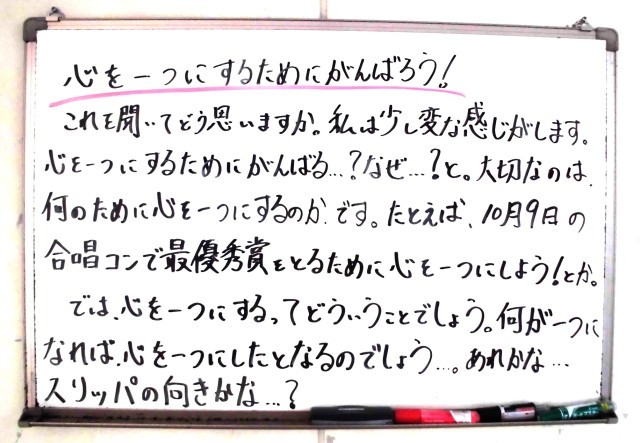 心を一つにするためにがんばろう!
これを聞いてどう思いますか。私は少し変な感じがします。
心を一つにするためにがんばる…?なぜ…?と。大切なのは、
何のために心を一つにするのか、です。たとえば、10月9日の
合唱コンで最優秀賞をとるために心を一つにしよう!とか。
では、心を一つにするってどういうことでしょう。何が一つに
なれば、心を一つにしたとなるのでしょう…。あれかな…
スリッパの向きかな…?